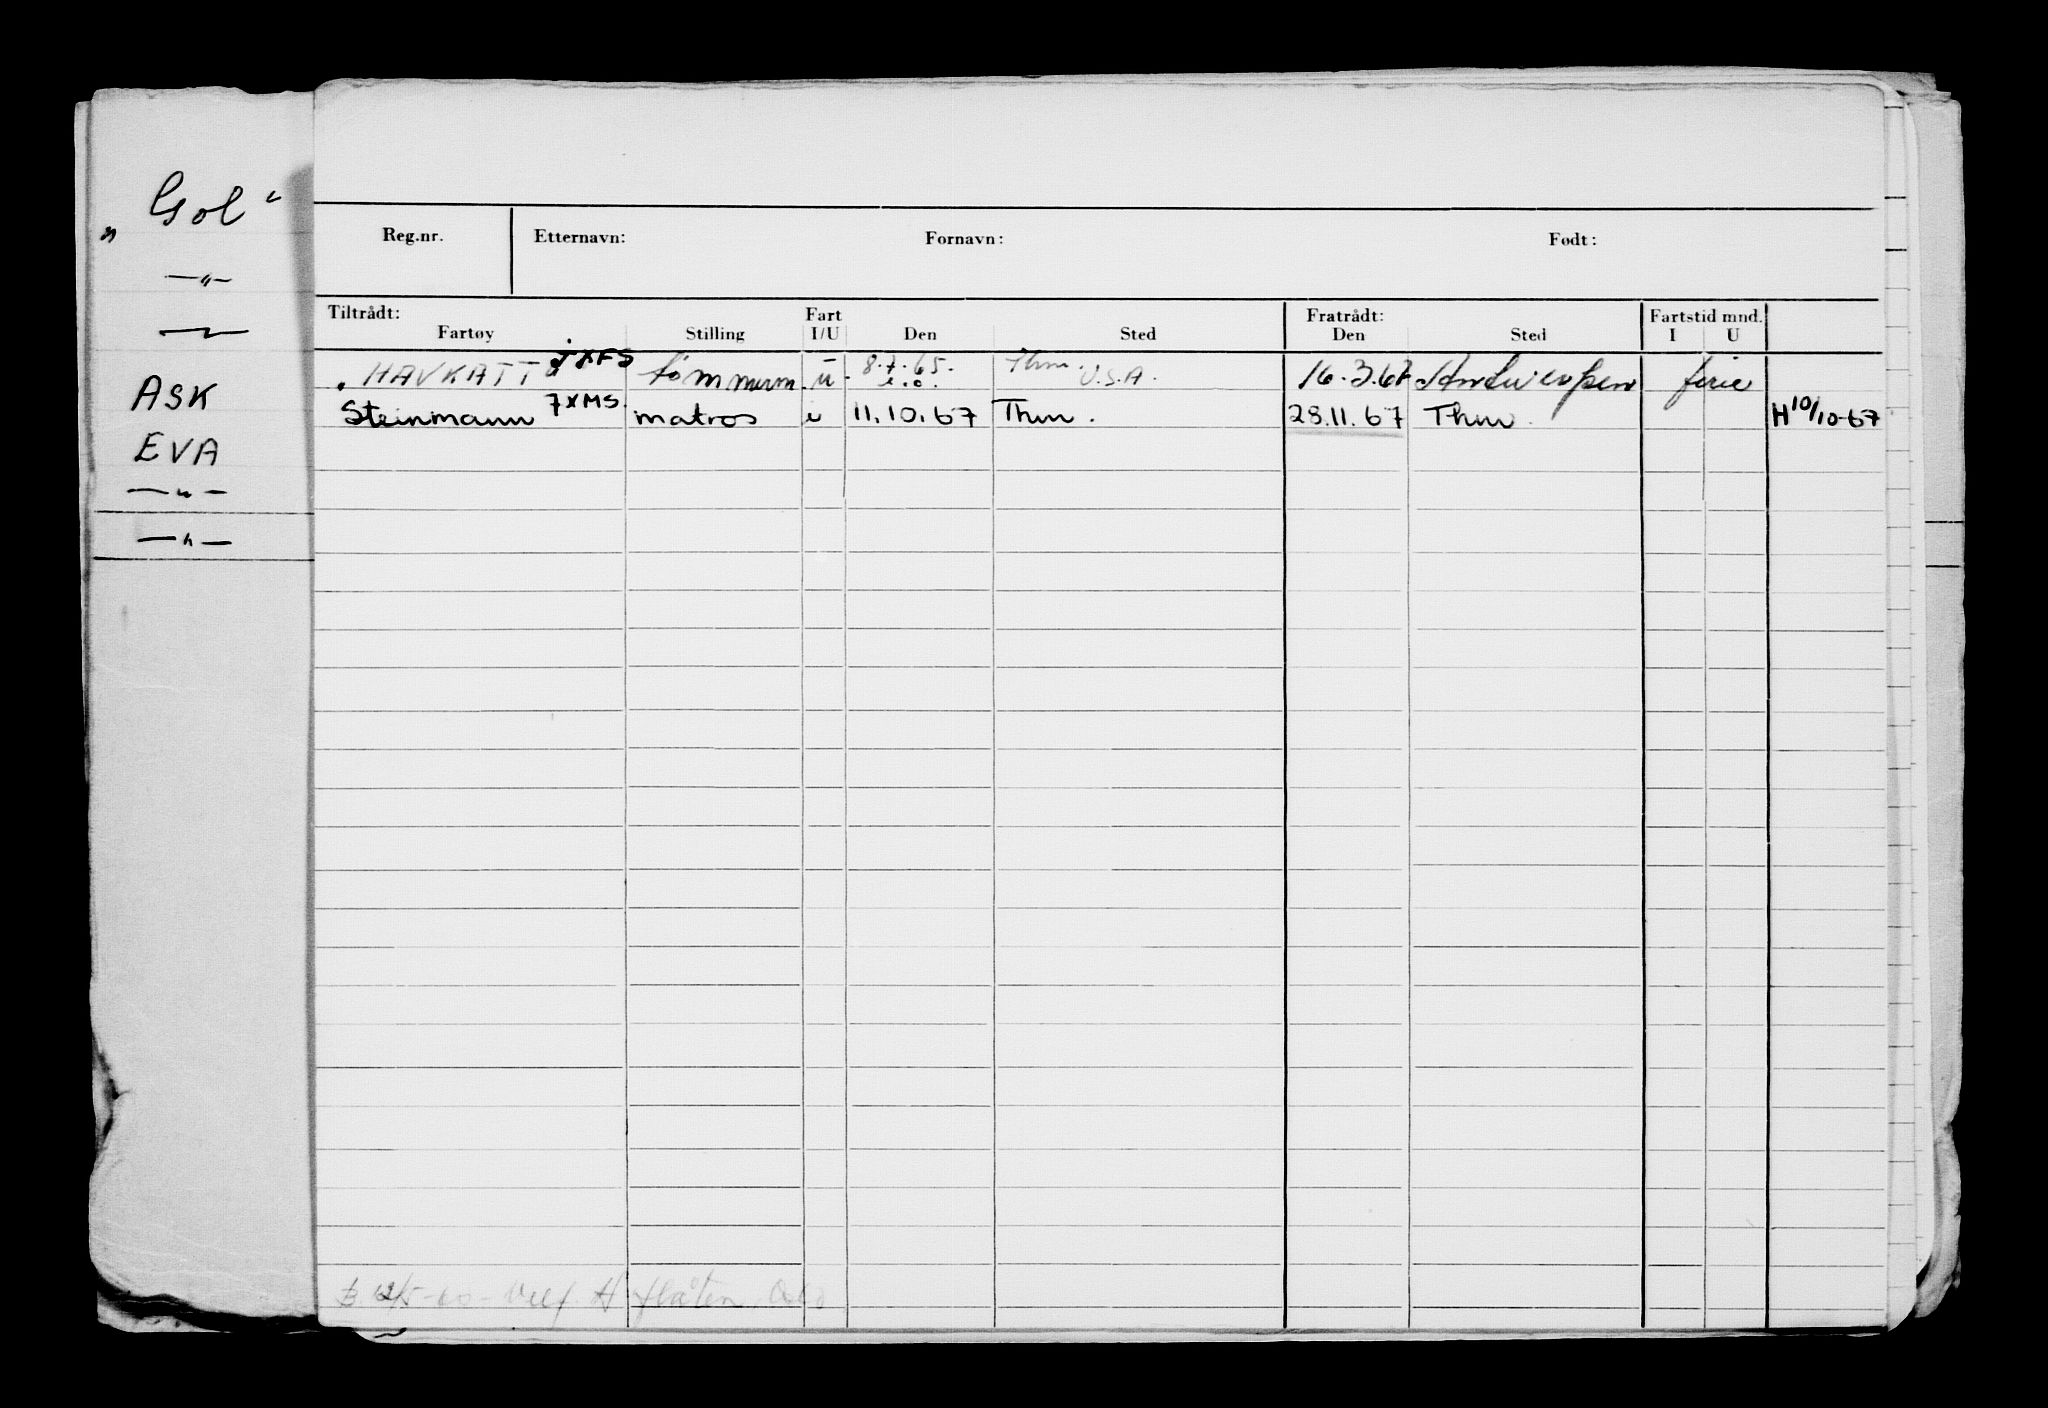 „ Gol “
—〃—
ASK
EVA
—〃—
—〃—
Reg.nr. Etternavn: Fornavn: Født:
Tiltrådt: Fart Fratrådt: Fartstid mnd.
Fartøy Stilling I/U Den Sted Den Sted I U
8.7.65. Thm.
HAVKATT JXFS tømmerm. u. U.S.A. 16.3.67 Antwerpen ferie
Steinmann JXMS matros i 11.10.67 Thm. 28.11.67 Thm. H 10/10-67
B 12/5-60 - Velf. H flåten, Oslo